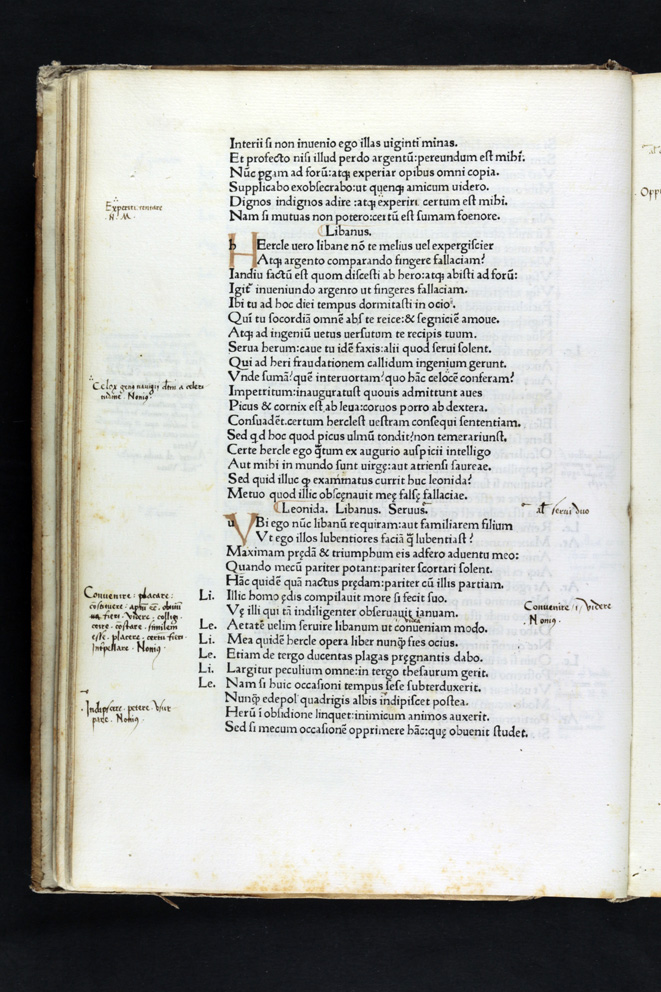 Interii si non inuenio ego illas uiginti minas.
Et profecto nisi illud perdo argentū:pereundum est mihi.
Nūc ꝑgam ad forū:atqꝫ experiar opibus omni copia.
Supplicabo exobsecrabo:ut quenqꝫ amicum uidero.
Dignos indignos adire :atqꝫ experiri certum est mihi.
Nam si mutuas non potero:certū est sumam foenore.
Libanus.
h HEercle uero libane nō te melius uel expergiscier
Atqꝫ argento comparando fingere fallaciam?
Iandiu factū est quom discesti ab hero:atqꝫ abisti ad forū:
Igit᷑ inueniundo argento ut fingeres fallaciam.
Ibi tu ad hoc diei tempus dormitasti in ocio.
Qui tu socordiā omnē abs te reice:& segniciē amoue.
Atqꝫ ad ingeniū uetus uersutum te recipis tuum.
Serua herum:caue tu idē faxis:alii quod serui solent.
Qui ad heri fraudationem callidum ingenium gerunt.
Vnde sumā?quē interuortam?quo hāc celocē conferam?
Impetritum:inauguratust quouis admittunt aues
Picus & cornix est ab leua:coruos porro ab dextera.
Consuadēt.certum herclest uestram consequi sententiam.
Sed qd hoc quod picus ulmū tondit?non temerariunst.
Certe hercle ego q̄tum ex augurio auspicii intelligo
Aut mihi in mundo sunt uirgę:aut atriensi saureae.
Sed quid illuc ꝙ examinatus currit huc leonida?
Metuo quod illic obscęnauit meę falsę fallaciae.
Leonida. Libanus. Seruus.
u VBi ego nūc libanū requiram:aut familiarem filium
Vt ego illos lubentiores faciā q̄ lubentiast?
Maximam prędā & triumphum eis adfero aduentu meo:
Quando mecū pariter potant:pariter scortari solent.
Hāc quidē quā nactus prędam:pariter cū illis partiam.
Li. Illic homo ędis compilauit more si fecit suo.
Vę illi qui tā indiligenter obseruauit ianuam.
Le. Aetatē uelim seruire libanum ut conueniam modo.
Li. Mea quidē hercle opera liber nunq̄ fies ocius.
Le. Etiam de tergo ducentas plagas pręgnantis dabo.
Li. Largitur peculium omne:in tergo thesaurum gerit.
Le. Nam si huic occasioni tempus sese subterduxerit.
Nunq̄ edepol quadrigis albis indipiscet postea.
Herū ī obsidione linquet:inimicum animos auxerit.
Sed si mecum occasionē opprimere hāc:quę obuenit studet.
Experiri: temtare
N. M.
Celox genus nauigii
Nonius
Convenire: placare:
esse. placere:
Nonius.
Indipscere. petere.
Nonius.
al serui duo
Convenire . i. Videre
Nonius